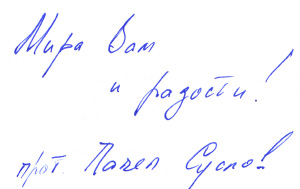 Мира Вам
и радости!
прот. Павел Суслов